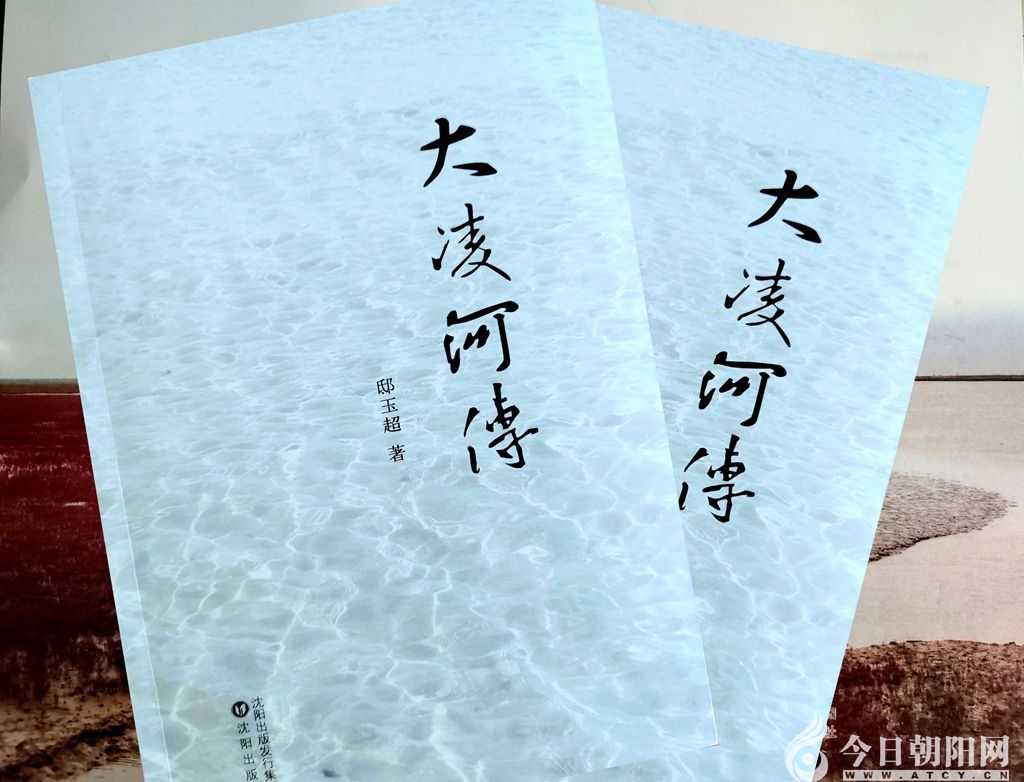 大凌河傳
邸玉超 著
沈阳出版发行集
沈阳出版
大凌河傳
今日朝阳网
WWW.ATCY.CN